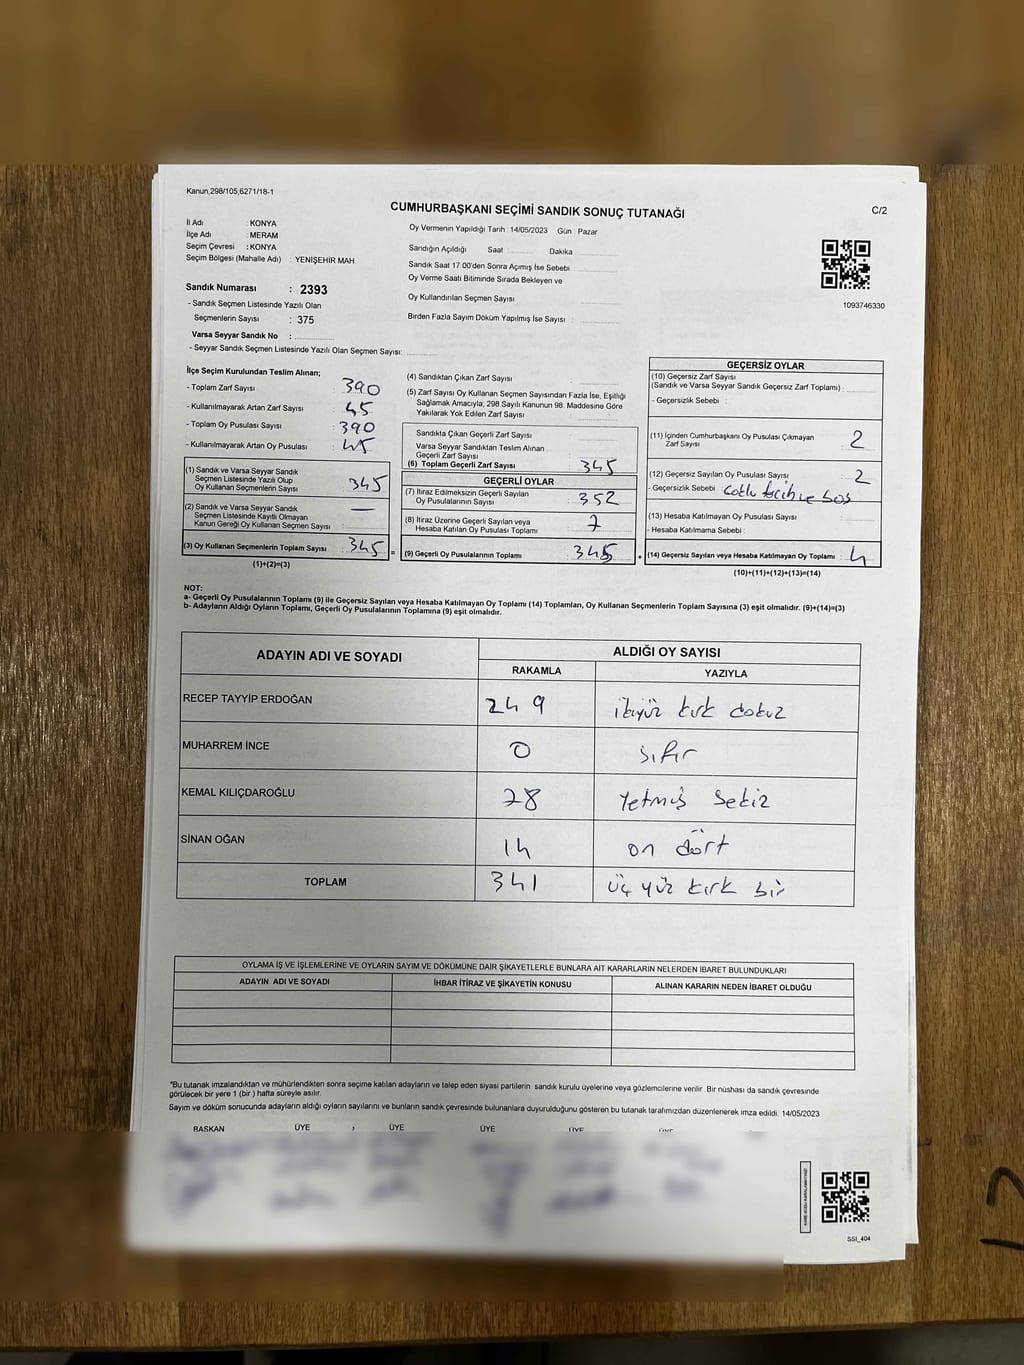 Kanun,298/105,6271/18-1
CUMHURBAŞKANI SEÇİMİ SANDIK SONUÇ TUTANAĞI
C/2
İl Adı : KONYA
İlçe Adı : MERAM
Seçim Çevresi : KONYA
Seçim Bölgesi (Mahalle Adı) : YENİŞEHİR MAH.
Sandık Numarası : 2393
- Sandık Seçmen Listesinde Yazılı Olan
Seçmenlerin Sayısı : 375
Varsa Seyyar Sandık No :
- Seyyar Sandık Seçmen Listesinde Yazılı Olan Seçmen Sayısı:
Oy Vermenin Yapıldığı Tarih :14/05/2023 Gün : Pazar
Sandığın Açıldığı Saat Dakika
Sandık Saat 17.00'den Sonra Açımış İse Sebebi :
Oy Verme Saati Bitiminde Sırada Bekleyen ve
Oy Kullandırılan Seçmen Sayısı
Birden Fazla Sayım Döküm Yapılmış İse Sayısı :
1093746330
İlçe Seçim Kurulundan Teslim Alınan;
- Toplam Zarf Sayısı : 390
- Kullanılmayarak Artan Zarf Sayısı : 45
- Toplam Oy Pusulası Sayısı : 390
- Kullanılmayarak Artan Oy Pusulası : 45
(1) Sandık ve Varsa Seyyar Sandık
Seçmen Listesinde Yazılı Olup
Oy Kullanan Seçmenlerin Sayısı : 345
(2) Sandık ve Varsa Seyyar Sandık
Seçmen Listesinde Kayıtlı Olmayan
Kanun Gereği Oy Kullanan Seçmen Sayısı : —
(3) Oy Kullanan Seçmenlerin Toplam Sayısı : 345 =
(1)+(2)=(3)
(4) Sandıktan Çıkan Zarf Sayısı :
(5) Zarf Sayısı Oy Kullanan Seçmen Sayısından Fazla İse, Eşitliği
Sağlamak Amacıyla; 298 Sayılı Kanunun 98. Maddesine Göre
Yakılarak Yok Edilen Zarf Sayısı :
Sandıkta Çıkan Geçerli Zarf Sayısı :
Varsa Seyyar Sandıktan Teslim Alınan
Geçerli Zarf Sayısı :
(6) Toplam Geçerli Zarf Sayısı : 345
GEÇERLİ OYLAR
(7) İtiraz Edilmeksizin Geçerli Sayılan
Oy Pusulalarının Sayısı : 352
(8) İtiraz Üzerine Geçerli Sayılan veya
Hesaba Katılan Oy Pusulası Toplamı : 7
(9) Geçerli Oy Pusulalarının Toplamı : 345 +
GEÇERSİZ OYLAR
(10) Geçersiz Zarf Sayısı
(Sandık ve Varsa Seyyar Sandık Geçersiz Zarf Toplamı) :
- Geçersizlik Sebebi :
(11) İçinden Cumhurbaşkanı Oy Pusulası Çıkmayan
Zarf Sayısı : 2
(12) Geçersiz Sayılan Oy Pusulası Sayısı : 2
- Geçersizlik Sebebi : çoklu tercih ve boş
(13) Hesaba Katılmayan Oy Pusulası Sayısı :
- Hesaba Katılmama Sebebi :
(14) Geçersiz Sayılan veya Hesaba Katılmayan Oy Toplamı : 4
(10)+(11)+(12)+(13)=(14)
NOT:
a- Geçerli Oy Pusulalarının Toplamı (9) ile Geçersiz Sayılan veya Hesaba Katılmayan Oy Toplamı (14) Toplamları, Oy Kullanan Seçmenlerin Toplam Sayısına (3) eşit olmalıdır. (9)+(14)=(3)
b- Adayların Aldığı Oyların Toplamı, Geçerli Oy Pusulalarının Toplamına (9) eşit olmalıdır.
ADAYIN ADI VE SOYADI
ALDIĞI OY SAYISI
RAKAMLA YAZIYLA
RECEP TAYYİP ERDOĞAN 249 ikiyüz kırk dokuz
MUHARREM İNCE 0 sıfır
KEMAL KILIÇDAROĞLU 78 Yetmiş Sekiz
SİNAN OĞAN 14 on dört
TOPLAM 341 üç yüz kırk bir
OYLAMA İŞ VE İŞLEMLERİNE VE OYLARIN SAYIM VE DÖKÜMÜNE DAİR ŞİKAYETLERLE BUNLARA AİT KARARLARIN NELERDEN İBARET BULUNDUKLARI
ADAYIN ADI VE SOYADI İHBAR İTİRAZ VE ŞİKAYETİN KONUSU ALINAN KARARIN NEDEN İBARET OLDUĞU
*Bu tutanak imzalandıktan ve mühürlendikten sonra seçime katılan adayların ve talep eden siyasi partilerin sandık kurulu üyelerine veya gözlemcilerine verilir. Bir nüshası da sandık çevresinde
görülecek bir yere 1 (bir ) hafta süreyle asılır.
Sayım ve döküm sonucunda adayların aldığı oyların sayılarını ve bunların sandık çevresinde bulunanlara duyurulduğunu gösteren bu tutanak tarafımızdan düzenlenerek imza edildi. 14/05/2023
BAŞKAN ÜYE ÜYE ÜYE ÜYE ÜYE
SSI_404